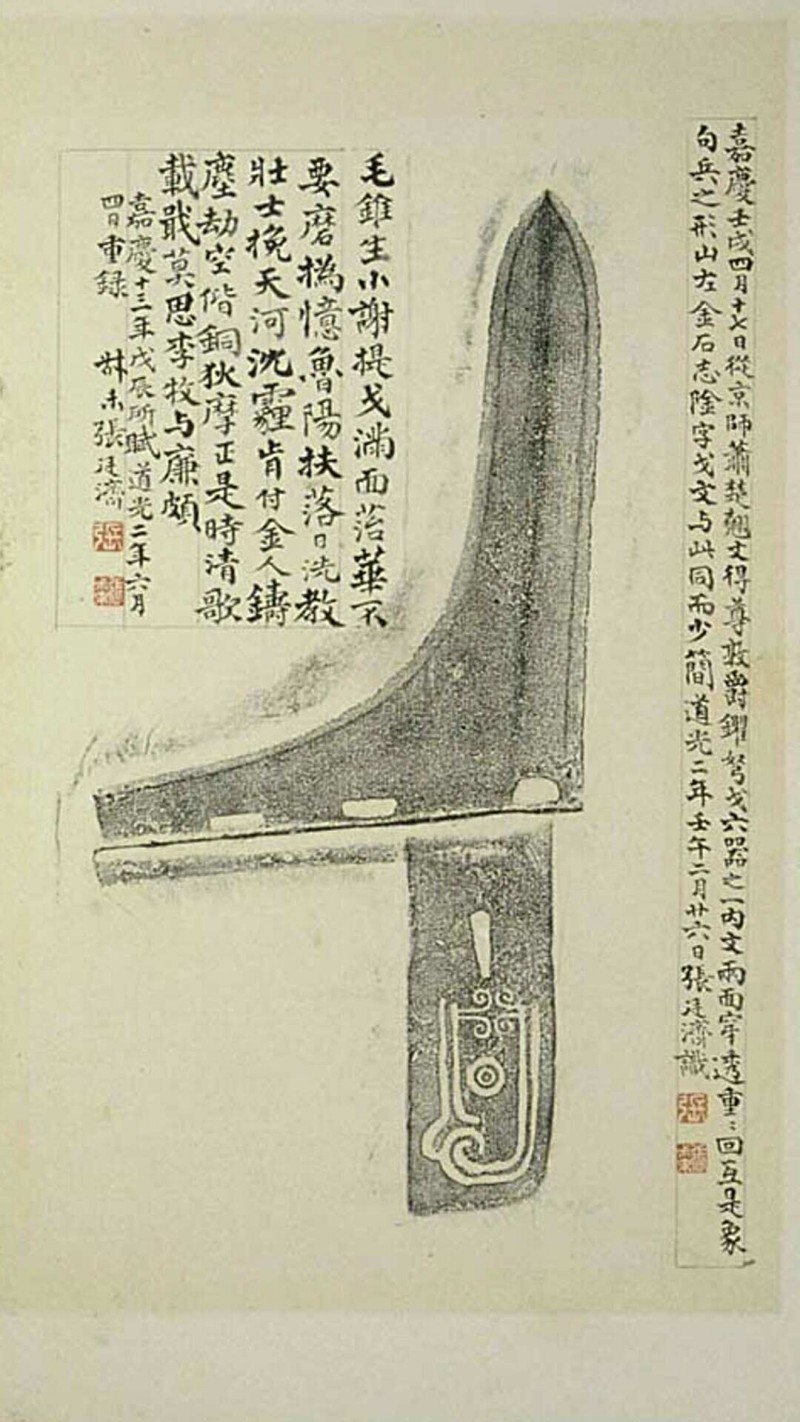 嘉慶壬戌四月十七日從京師蕭楚翹丈得尊敦爵鐸弩戈六器之一內文兩面穿透重〻回互是象
句兵之形山左金石志陰字戈文与此同而少簡道光二年壬午二月廿六日張廷濟識
毛錐生小謝提戈滿面苔華不
要磨撝憶魯陽扶落日洗教
壯士挽天河沈霾肯付金人鑄
塵劫空偕銅狄摩正是時清歌
載戢莫思李牧与廉頗
嘉慶十三年戊辰所賦道光二年六月
四日重録 叔未張廷濟